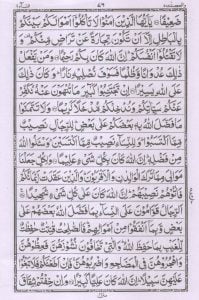 ضَعِيْفًا يٰۤاَيُّهَا الَّذِيْنَ اٰمَنُوْا لَا تَاْكُلُوْۤا اَمْوَالَكُمْ بَيْنَكُمْ
بِالْبَاطِلِ اِلَّاۤ اَنْ تَكُوْنَ تِجَارَةً عَنْ تَرَاضٍ مِّنْكُمْ وَ
لَا تَقْتُلُوْۤا اَنْفُسَكُمْ اِنَّ اللّٰهَ كَانَ بِكُمْ رَحِيْمًا وَمَنْ يَّفْعَلْ
ذٰلِكَ عُدْوَانًا وَّظُلْمًا فَسَوْفَ نُصْلِيْهِ نَارًا وَكَانَ ذٰلِكَ
عَلَى اللّٰهِ يَسِيْرًا اِنْ تَجْتَنِبُوْا كَبَآئِرَ مَا تُنْهَوْنَ عَنْهُ نُكَفِّرْ
عَنْكُمْ سَيِّاٰتِكُمْ وَنُدْخِلْكُمْ مُّدْخَلًا كَرِيْمًا وَلَا تَتَمَنَّوْا
مَا فَضَّلَ اللّٰهُ بِهٖ بَعْضَكُمْ عَلٰى بَعْضٍ لِلرِّجَالِ نَصِيْبٌ
مِّمَّا اكْتَسَبُوْا وَلِلنِّسَآءِ نَصِيْبٌ مِّمَّا اكْتَسَبْنَ وَسْئَلُوا اللّٰهَ
مِنْ فَضْلِهٖ اِنَّ اللّٰهَ كَانَ بِكُلِّ شَيْءٍ عَلِيْمًا وَلِكُلٍّ جَعَلْنَا
مَوَالِيَ مِمَّا تَرَكَ الْوَالِدٰنِ وَالْاَقْرَبُوْنَ وَالَّذِيْنَ عَقَدَتْ اَيْمَانُكُمْ
فَاٰتُوْهُمْ نَصِيْبَهُمْ اِنَّ اللّٰهَ كَانَ عَلٰى كُلِّ شَيْءٍ شَهِيْدًا
اَلرِّجَالُ قَوّٰمُوْنَ عَلَى النِّسَآءِ بِمَا فَضَّلَ اللّٰهُ بَعْضَهُمْ عَلٰى
بَعْضٍ وَّبِمَاۤ اَنْفَقُوْا مِنْ اَمْوَالِهِمْ فَالصّٰلِحٰتُ قٰنِتٰتٌ حٰفِظٰتٌ
لِّلْغَيْبِ بِمَا حَفِظَ اللّٰهُ وَالّٰتِيْ تَخَافُوْنَ نُشُوْزَهُنَّ فَعِظُوْهُنَّ
وَاهْجُرُوْهُنَّ فِي الْمَضَاجِعِ وَاضْرِبُوْهُنَّ فَاِنْ اَطَعْنَكُمْ فَلَا تَبْغُوْا
عَلَيْهِنَّ سَبِيْلًا اِنَّ اللّٰهَ كَانَ عَلِيًّا كَبِيْرًا وَاِنْ خِفْتُمْ شِقَاقَ